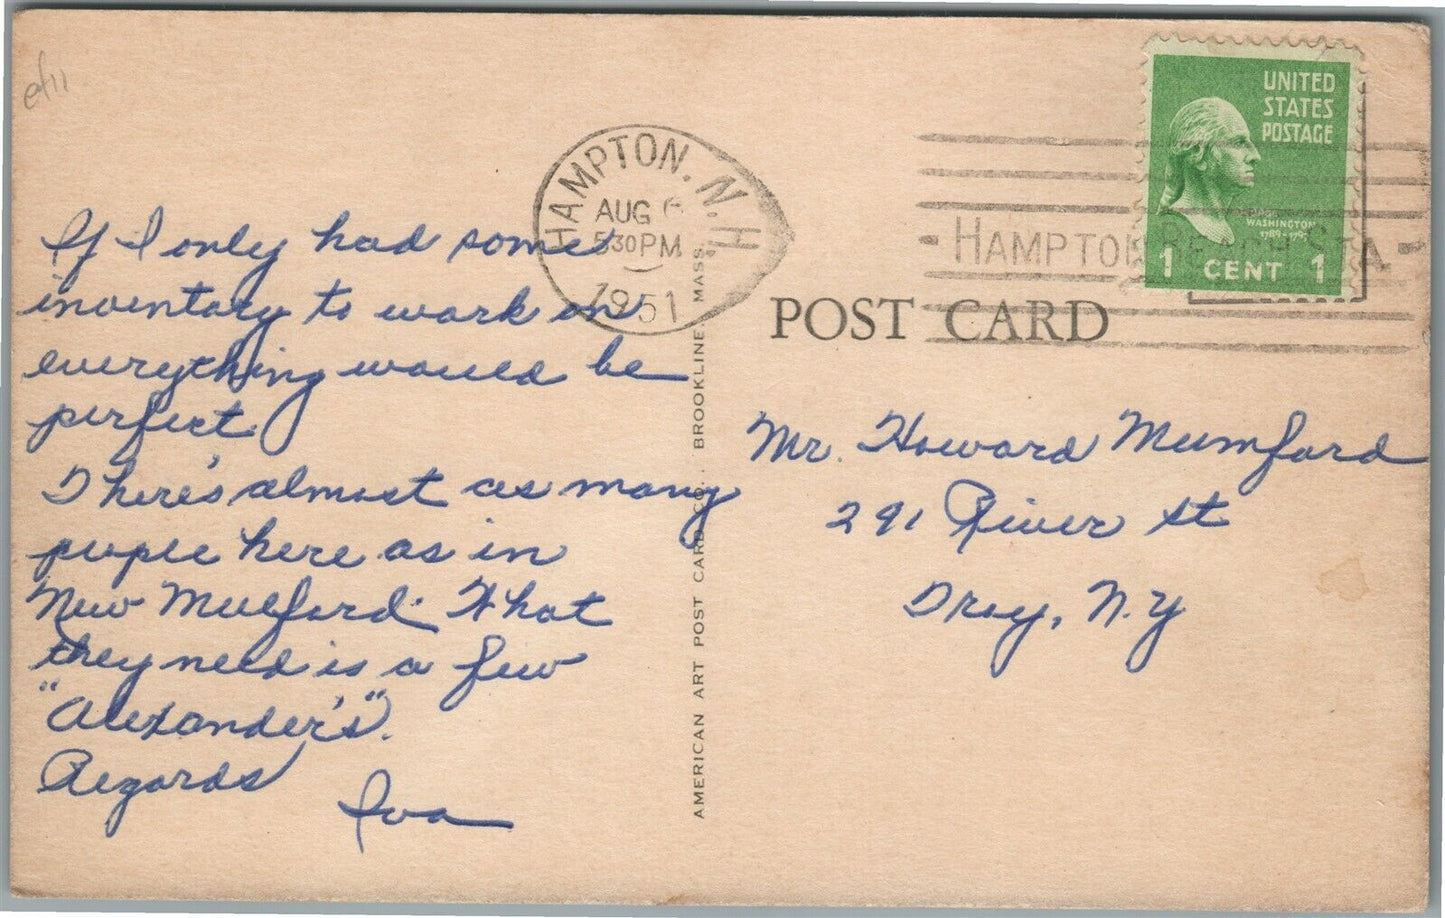 ef11
HAMPTON, N.H.
AUG 6
5 30 PM
1951
HAMPTON BEACH STA.
UNITED
STATES
POSTAGE
WASHINGTON
1789-1797
1 CENT 1
POST CARD
If I only had some
inventory to work on
everything would be
perfect.
There's almost as many
people here as in
New Mulford. What
they need is a few
"Alexander's".
Regards
Iva
AMERICAN ART POST CARD CO., BROOKLINE, MASS.
Mr. Howard Mumford
291 River St
Troy, N.Y